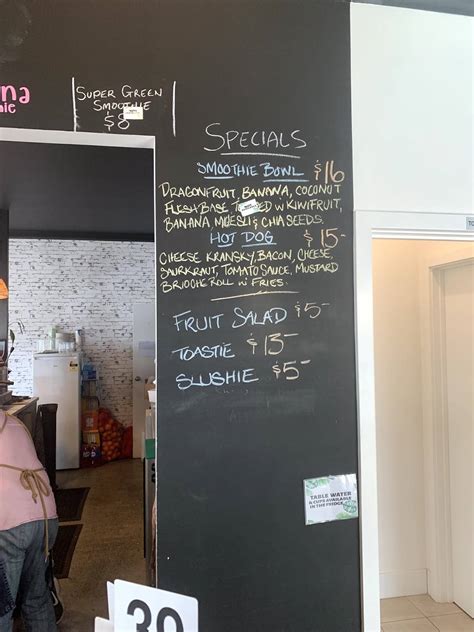 na
nic
SUPER GREEN
SMOOTHIE
$8
SPECIALS
SMOOTHIE BOWL $16
DRAGONFRUIT, BANANA, COCONUT
FLESH BASE W KIWIFRUIT,
BANANA, MUESLI & CHIA SEEDS.
HOT DOG $15-
CHEESE KRANSKY, BACON, CHEESE,
SAURKRAUT, TOMATO SAUCE, MUSTARD
BRIOCHE ROLL W/ FRIES.
FRUIT SALAD $5-
TOASTIE $13-
SLUSHIE $5-
TABLE WATER
& CUPS AVAILABLE
IN THE FRIDGE
TO
39